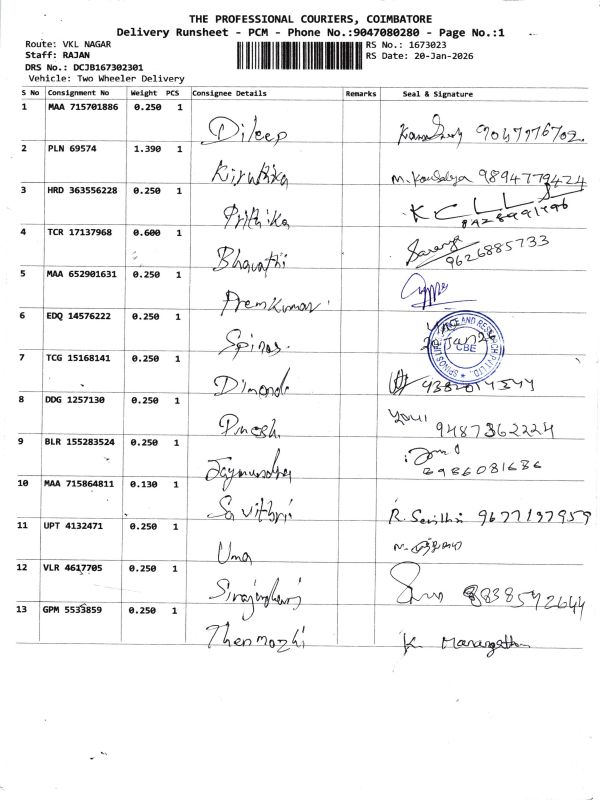 THE PROFESSIONAL COURIERS, COIMBATORE
Delivery Runsheet - PCM - Phone No.:9047080280 - Page No.:1
Route: VKL NAGAR
RS No.: 1673023
Staff: RAJAN
RS Date: 20-Jan-2026
DRS No.: DCJB167302301
Vehicle: Two Wheeler Delivery
S No Consignment No Weight PCS Consignee Details Remarks Seal & Signature
1 MAA 715701886 0.250 1
Dileep
2 PLN 69574 1.390 1
Kiruthika M. Kousalya 9894779424
3 HRD 363556228 0.250 1
Prithika
8928991996
4 TCR 17137968 0.600 1
Bharathi Saranya 9626885733
5 MAA 652901631 0.250 1
Premkumar
6 EDQ 14576222 0.250 1
Spinos
7 TCG 15168141 0.250 1
Dimond
8 DDG 1257130 0.250 1
Dinesh 9487362224
9 BLR 155283524 0.250 1
6986081686
10 MAA 715864811 0.130 1
Savithri R. 9677197959
11 UPT 4132471 0.250 1
Uma
12 VLR 4617705 0.250 1
8838542644
13 GPM 5533859 0.250 1
Thenmozhi K